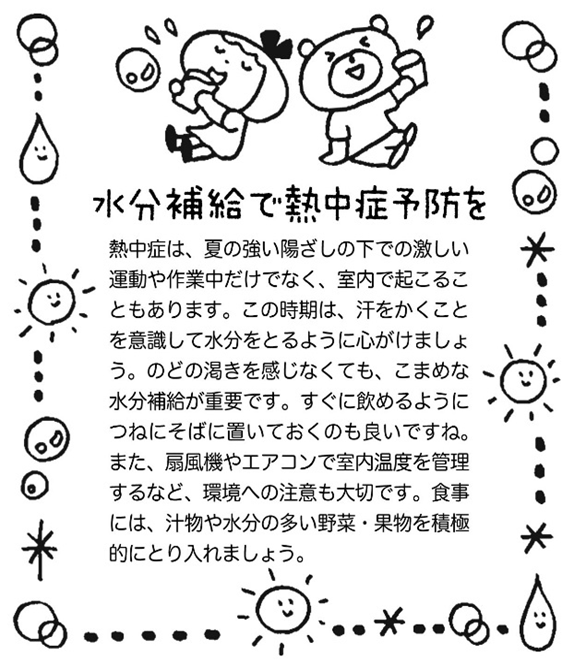 水分補給で熱中症予防を
熱中症は、夏の強い陽ざしの下での激しい
運動や作業中だけでなく、室内で起こるこ
ともあります。この時期は、汗をかくこと
を意識して水分をとるように心がけましょ
う。のどの渇きを感じなくても、こまめな
水分補給が重要です。すぐに飲めるように
つねにそばに置いておくのも良いですね。
また、扇風機やエアコンで室内温度を管理
するなど、環境への注意も大切です。食事
には、汁物や水分の多い野菜・果物を積極
的にとり入れましょう。